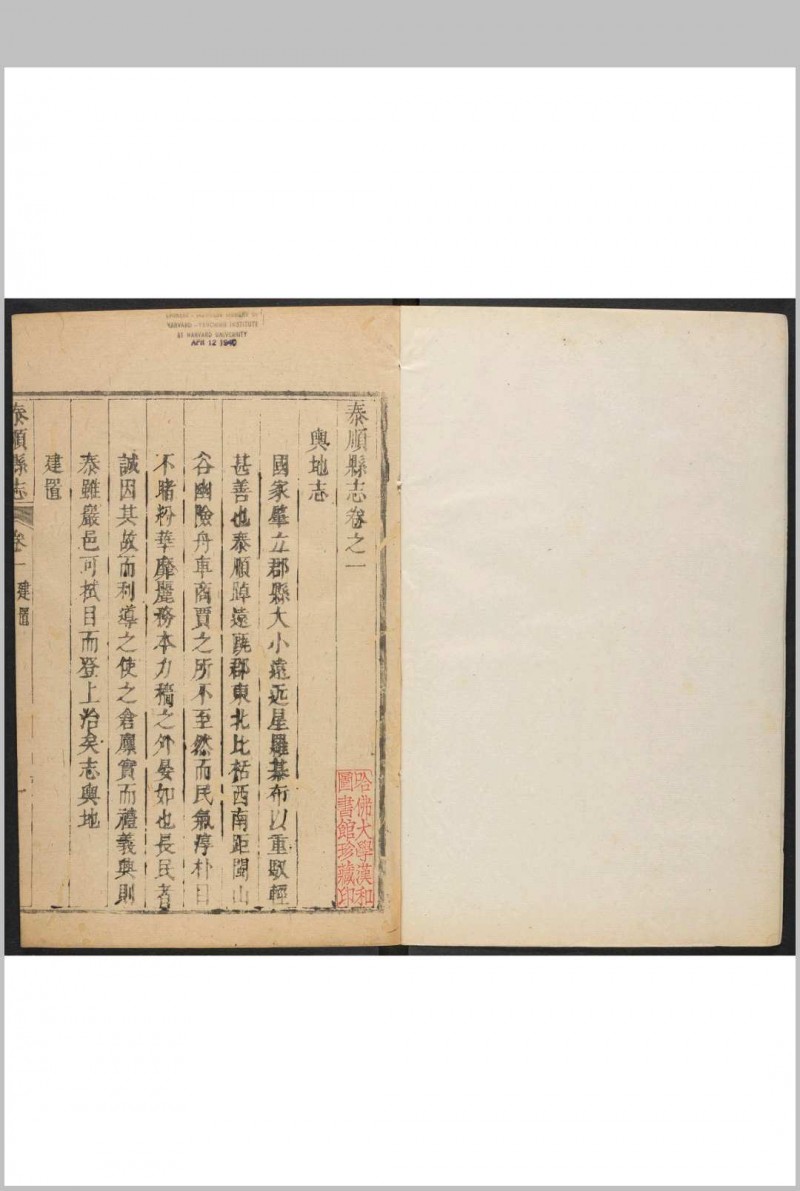 HARVARD-YENCHING INSTITUTE
AT HARVARD UNIVERSITY
APR 12 1940
泰順縣志卷之一
輿地志
國家肇立郡縣大小遠近星羅棊布以重馭輕
甚善也泰順踔遠毗郡東北比栝西南距閩山
谷幽險舟車商賈之所不至然而民氣淳朴目
不睹粉華靡麗務本力穡之外晏如也長民者
誠因其故而利導之使之倉廪實而禮義興則
泰雖巖邑可拭目而登上治矣志輿地
建置
泰順縣志 卷一 建置 一
哈佛大學漢和
圖書館珍藏印